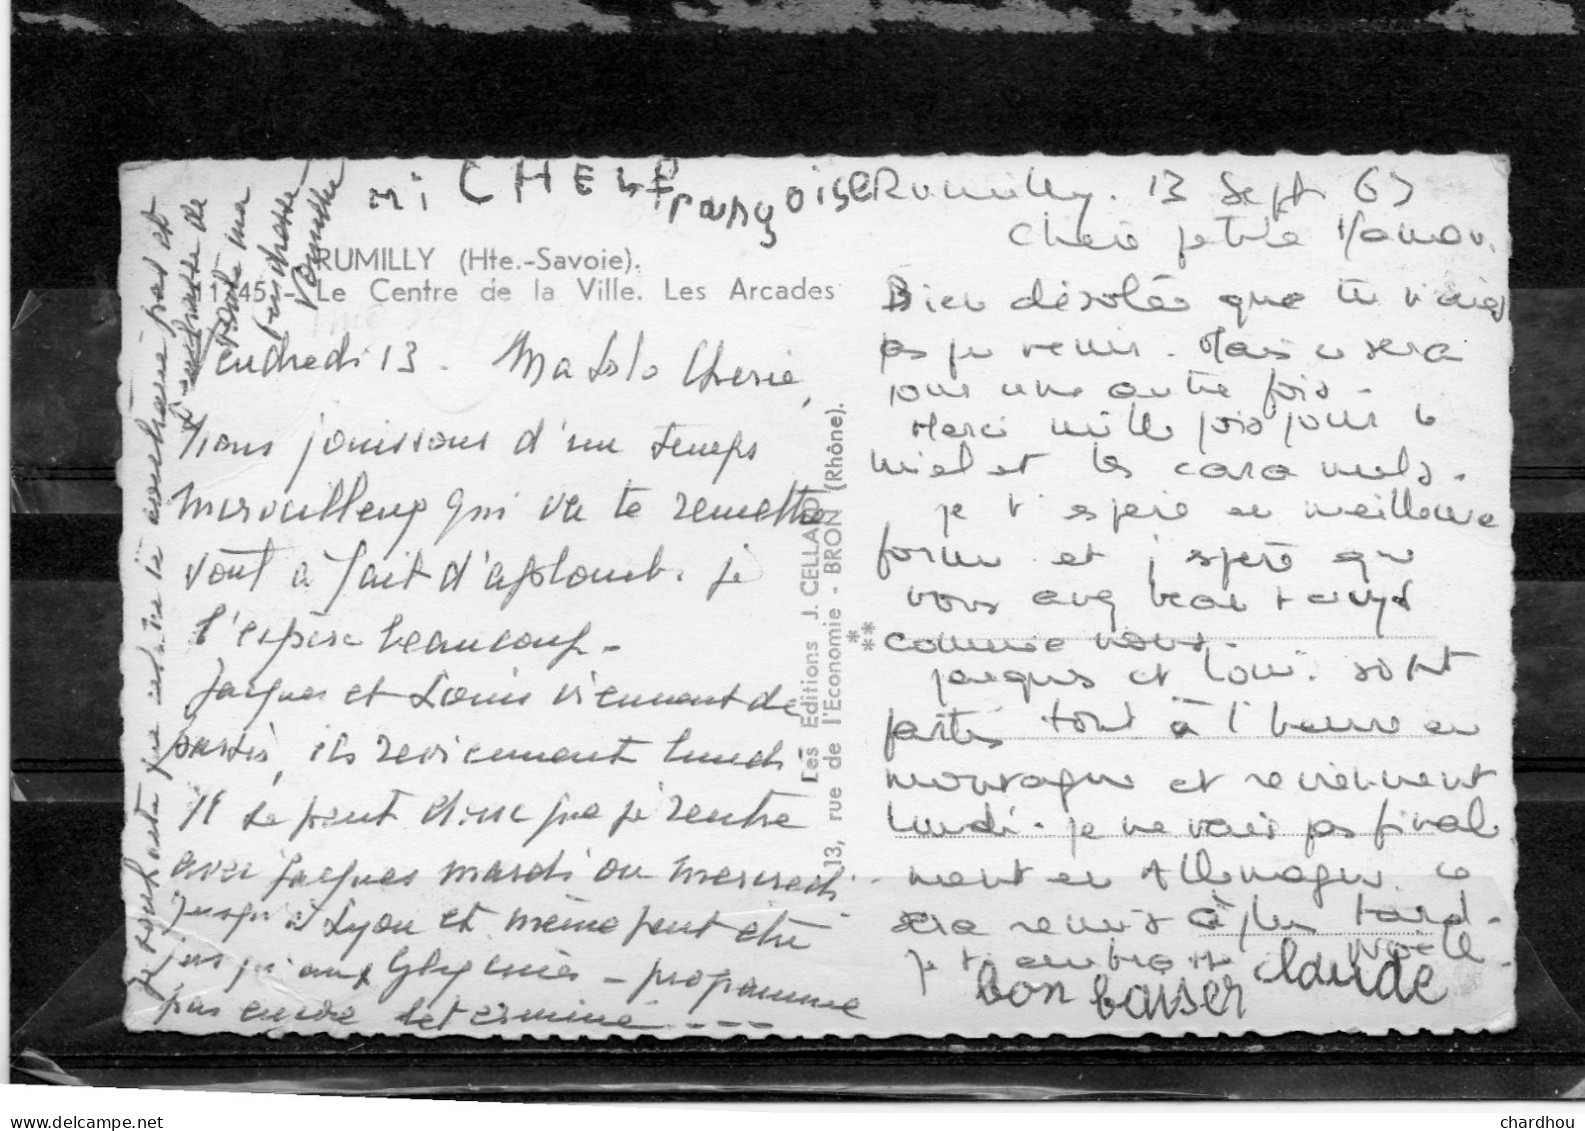 MiCHELE Françoise
RUMILLY (Hte.-Savoie).
1145. - Le Centre de la Ville. Les Arcades
Vendredi 13. Ma Lolo Cherie,
Nous jouissons d'un temps
merveilleux qui va te remettre
tout à fait d'aplomb. je
l'espère beaucoup -
Jacques et Louis viennent de
partir, ils reviennent lundi
Il se peut donc que je rentre
avec Jacques mardi ou mercredi
jusqu'à Lyon et même peut être
jusqu'aux Glycines - programme
pas encore determiné - - - -
Je souhaite que
et
de
toute ma
tendresse
Les Editions J. CELLARD
13, rue de l'Economie - BRON (Rhône).
Rumilly. 13 Sept 63
Chère petite Manou.
Bien désolée que tu n'aies
pas pu venir. Mais ce sera
pour une autre fois -
Merci mille fois pour le
miel et les caramels.
je t'espère en meilleure
forme et j'espère que
vous avez beau temps
comme nous.
Jacques et Louis sont
partis tout à l'heure en
montagne et reviennent
lundi. je ne vais pas final
ement en Allemagne. ce
sera remis à plus tard.
je t'embrasse Noëlle.
bon baiser claude
www.delcampe.net
chardhou